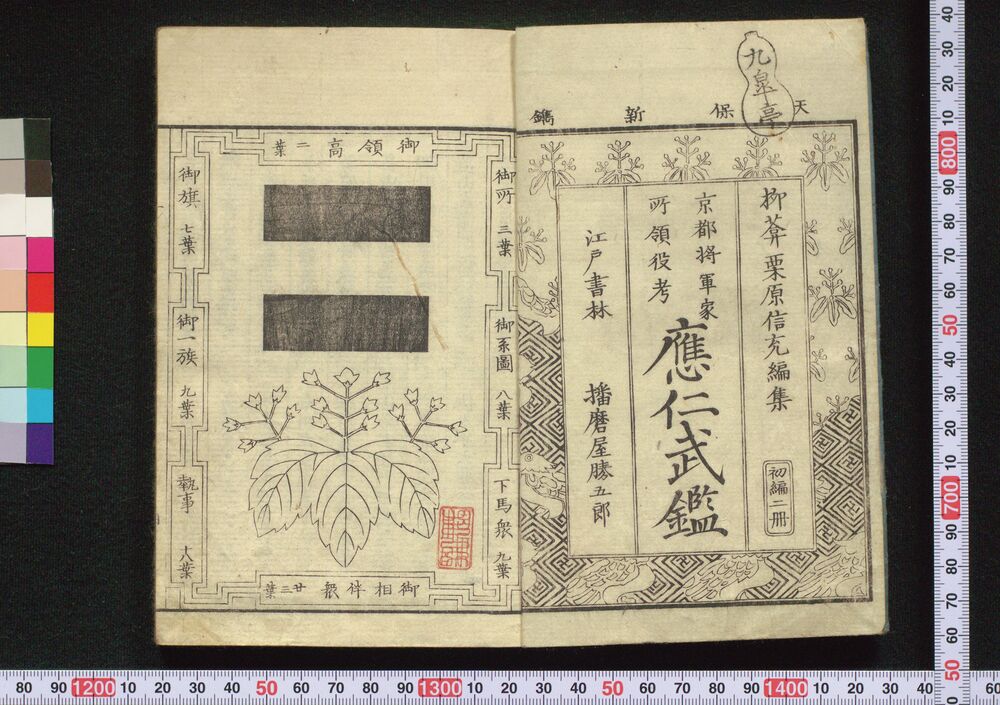 九皐亭
天保新鐫
柳菴栗原信充編集
初編二冊
京都将軍家
所領役考
應仁武鑑
江戸書林
播磨屋勝五郎
御領高 二葉
御所 三葉
御系圖 八葉
下馬衆 九葉
御旗 七葉
御一族 九葉
執事 十八葉
御相伴衆 廿三葉